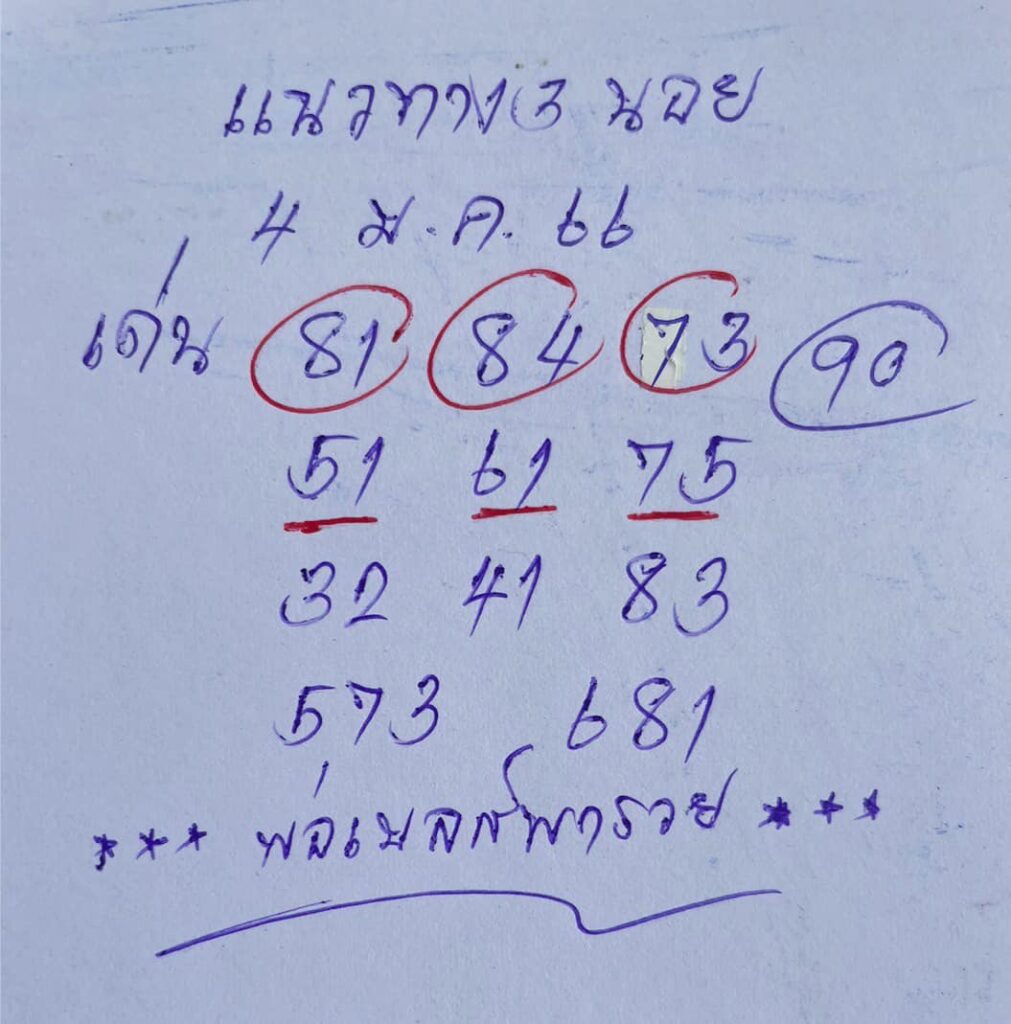 แนวทาง 3 นอย
4 ม.ค. 66
เด่น 81 84 73 90
51 61 75
32 41 83
573 681
*** พ่อเมลล์พารวย ***